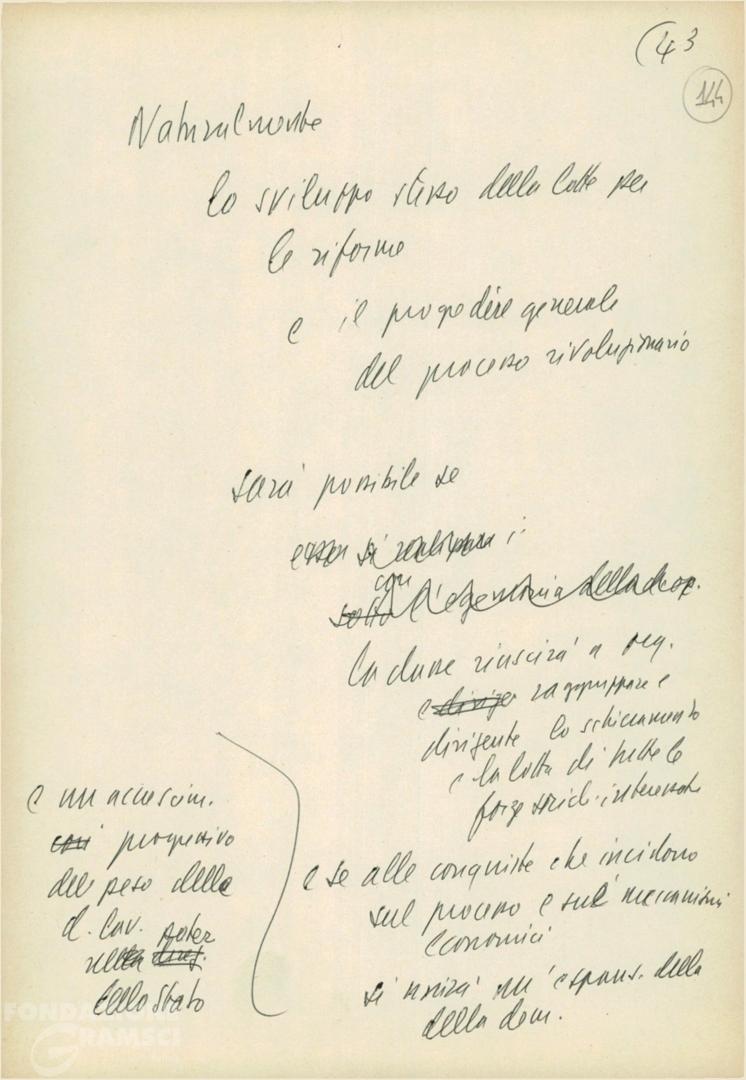 (43
144
Naturalmente
lo sviluppo stesso della lotta per
le riforme
e il progredire generale
del processo rivoluzionario
sarà possibile se
essa si realizzerà
con
sotto l'egemonia della
la classe riuscirà a org.
e dirige raggruppare e
dirigente lo schieramento
e la lotta di tutte le
forze sociali interessate
e se alle conquiste che incidono
sul processo e sui meccanismi
economici
si unirà un'espans. della
della dem.
e un accrescim.
così progressivo
del peso della
d. lav. poter
nella direz.
dello Stato
FONDAZIONE
GRAMSCI